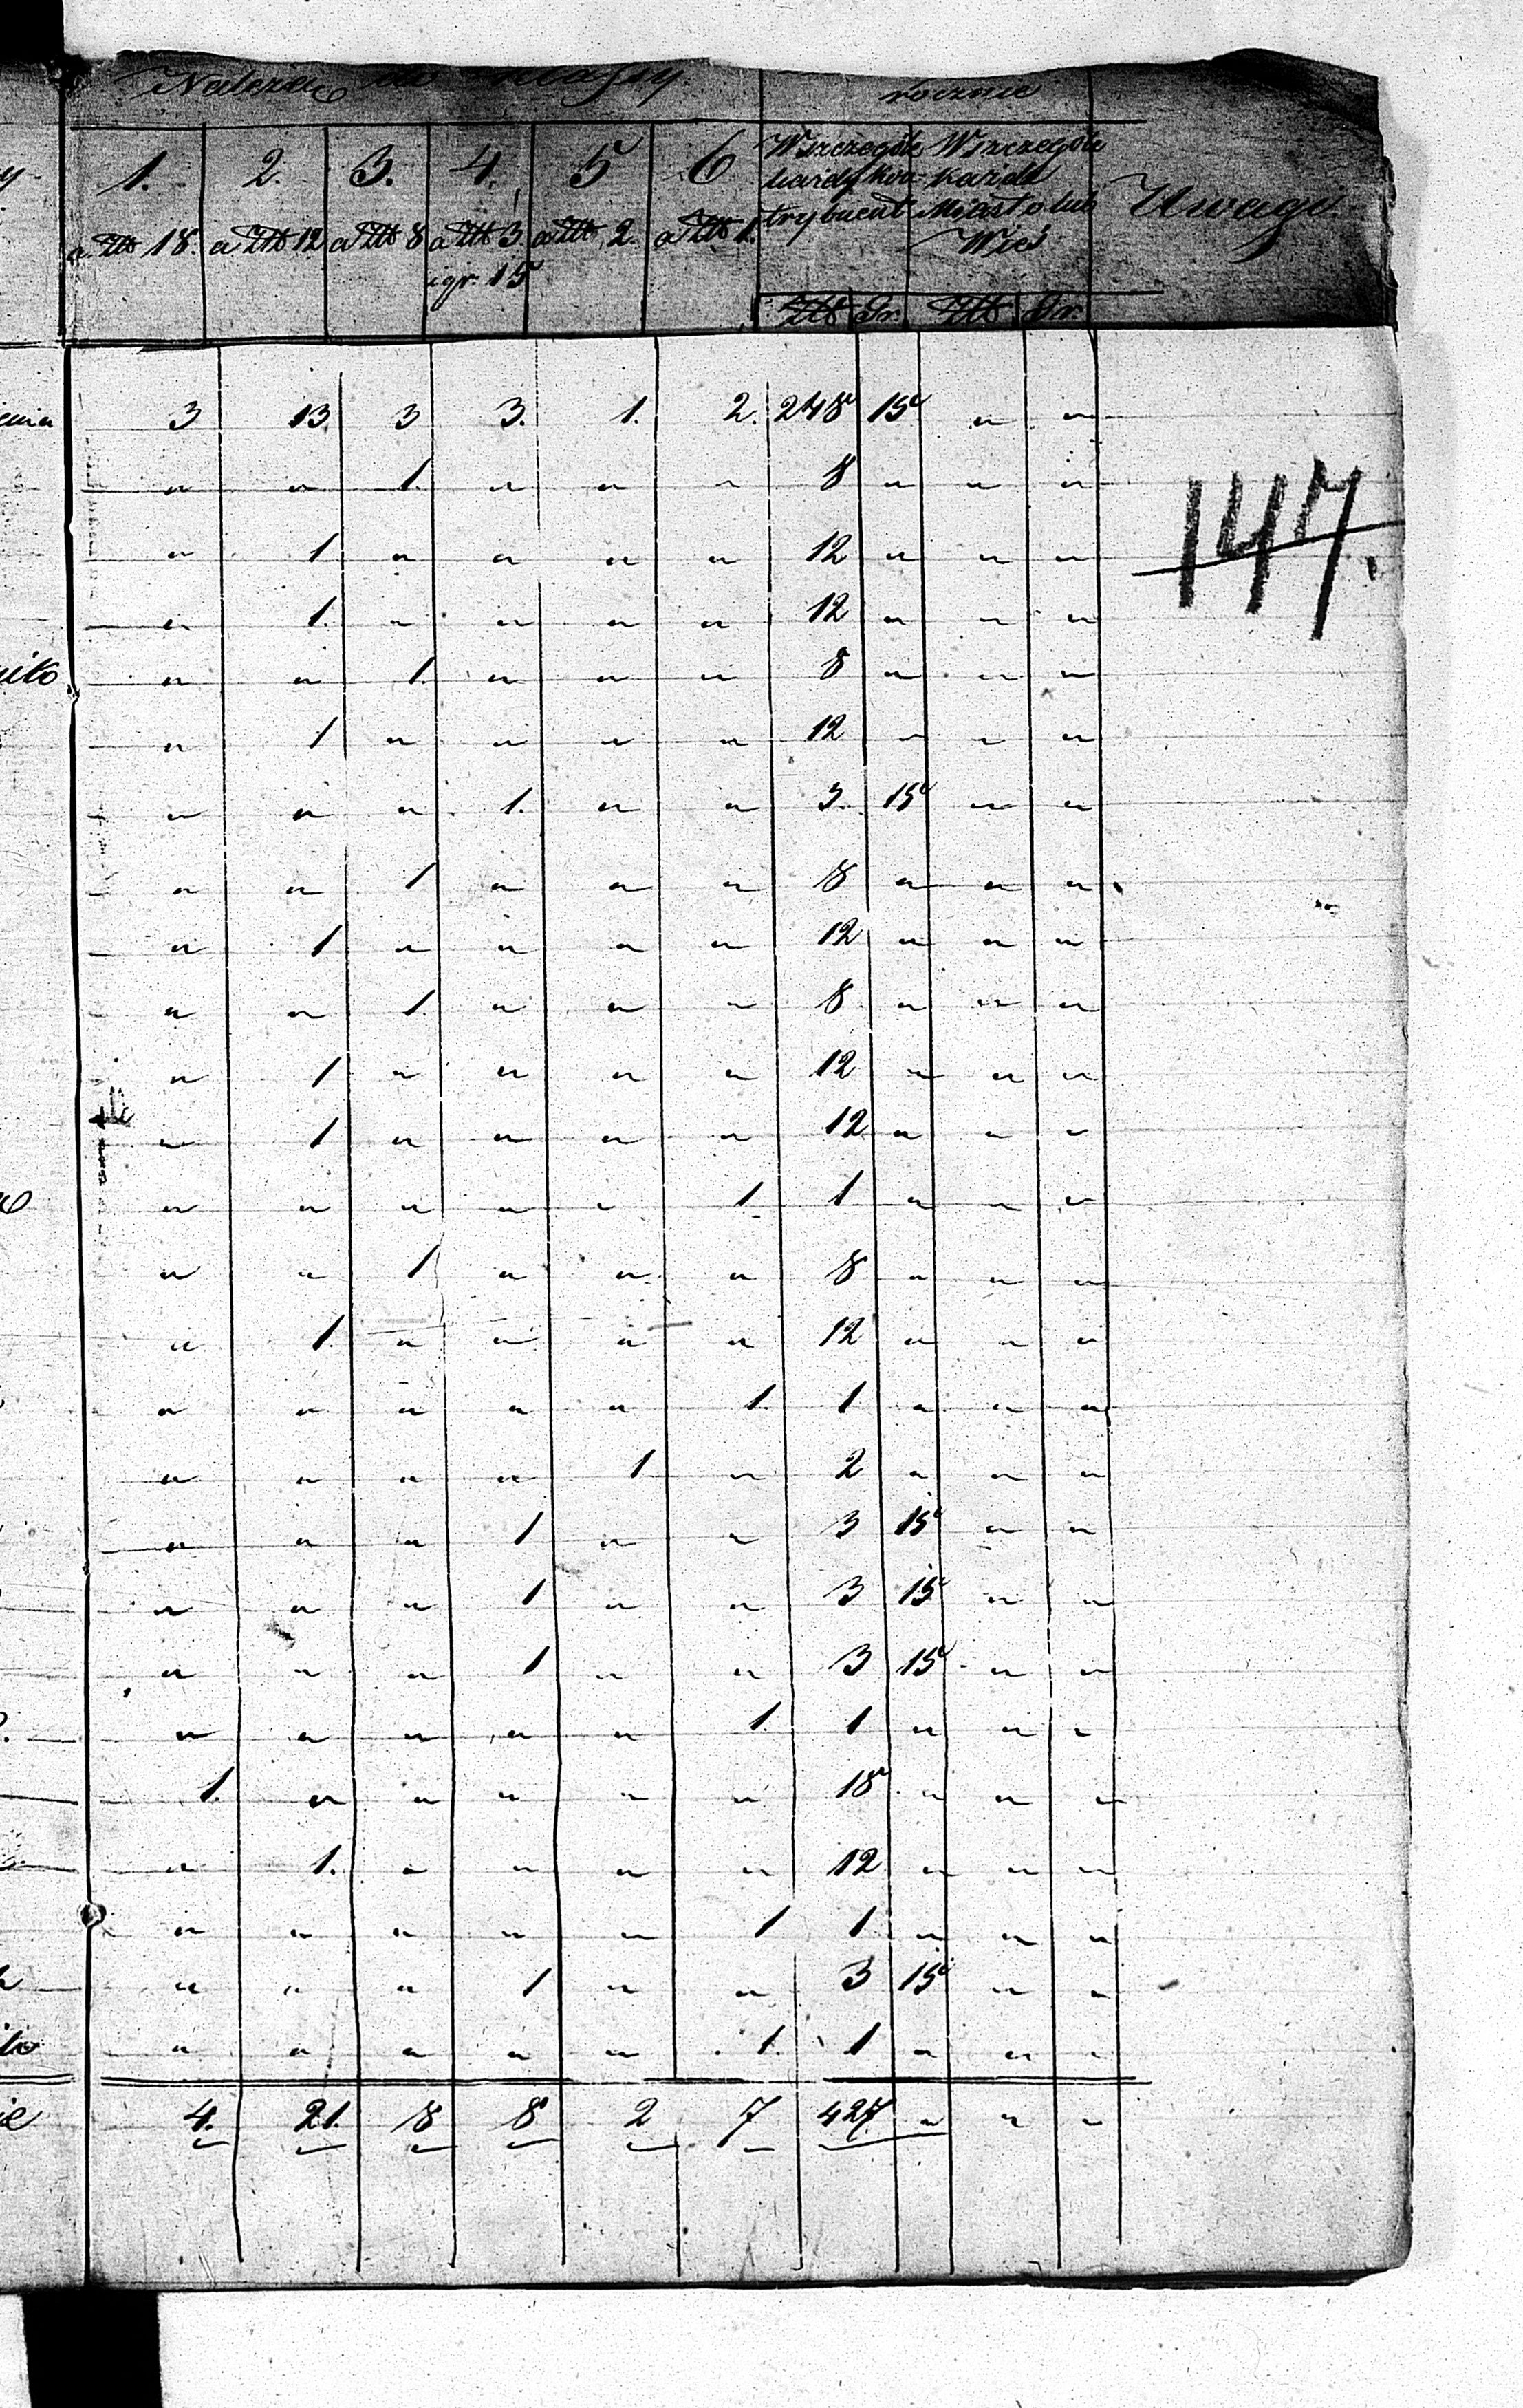 Należą do klassy
rocznie
1. 2. 3. 4. 5 6
Wszczególe każdy kontrybuent
Wszczególe każde Miasto lub Wieś
Uwagi
a Złt 18. a Złt 12 a Złt 8 a Złt 3. igr. 15 a Złt 2. a Złt 1.
Złt Gr. Złt Gr.
3 13 3 3. 1. 2. 248 15 " "
" " 1. " " " 8 " " "
147.
" 1 " " " " 12 " " "
" 1. " " " " 12 " " "
" " 1. " " " 8 " " "
" 1 " " " " 12 " " "
" " " 1. " " 3. 15 " "
" " 1 " " " 8 " " "
" 1 " " " " 12 " " "
" " 1. " " " 8 " " "
" 1 " " " " 12 " " "
" 1 " " " " 12 " " "
" " " " " 1. 1 " " "
" " 1 " " " 8 " " "
" 1. " " " " 12 " " "
" " " " " 1. 1 " " "
" " " " 1 " 2 " " "
" " " 1 " " 3 15 " "
" " " 1 " " 3 15 " "
" " " 1 " " 3 15 " "
" " " " " 1. 1 " " "
1. " " " " " 18 " " "
" 1. " " " " 12 " " "
" " " " " 1 1 " " "
" " " 1 " " 3 15 " "
" " " " " 1. 1 " " "
4. 21. 8 8 2 7 427 " " "